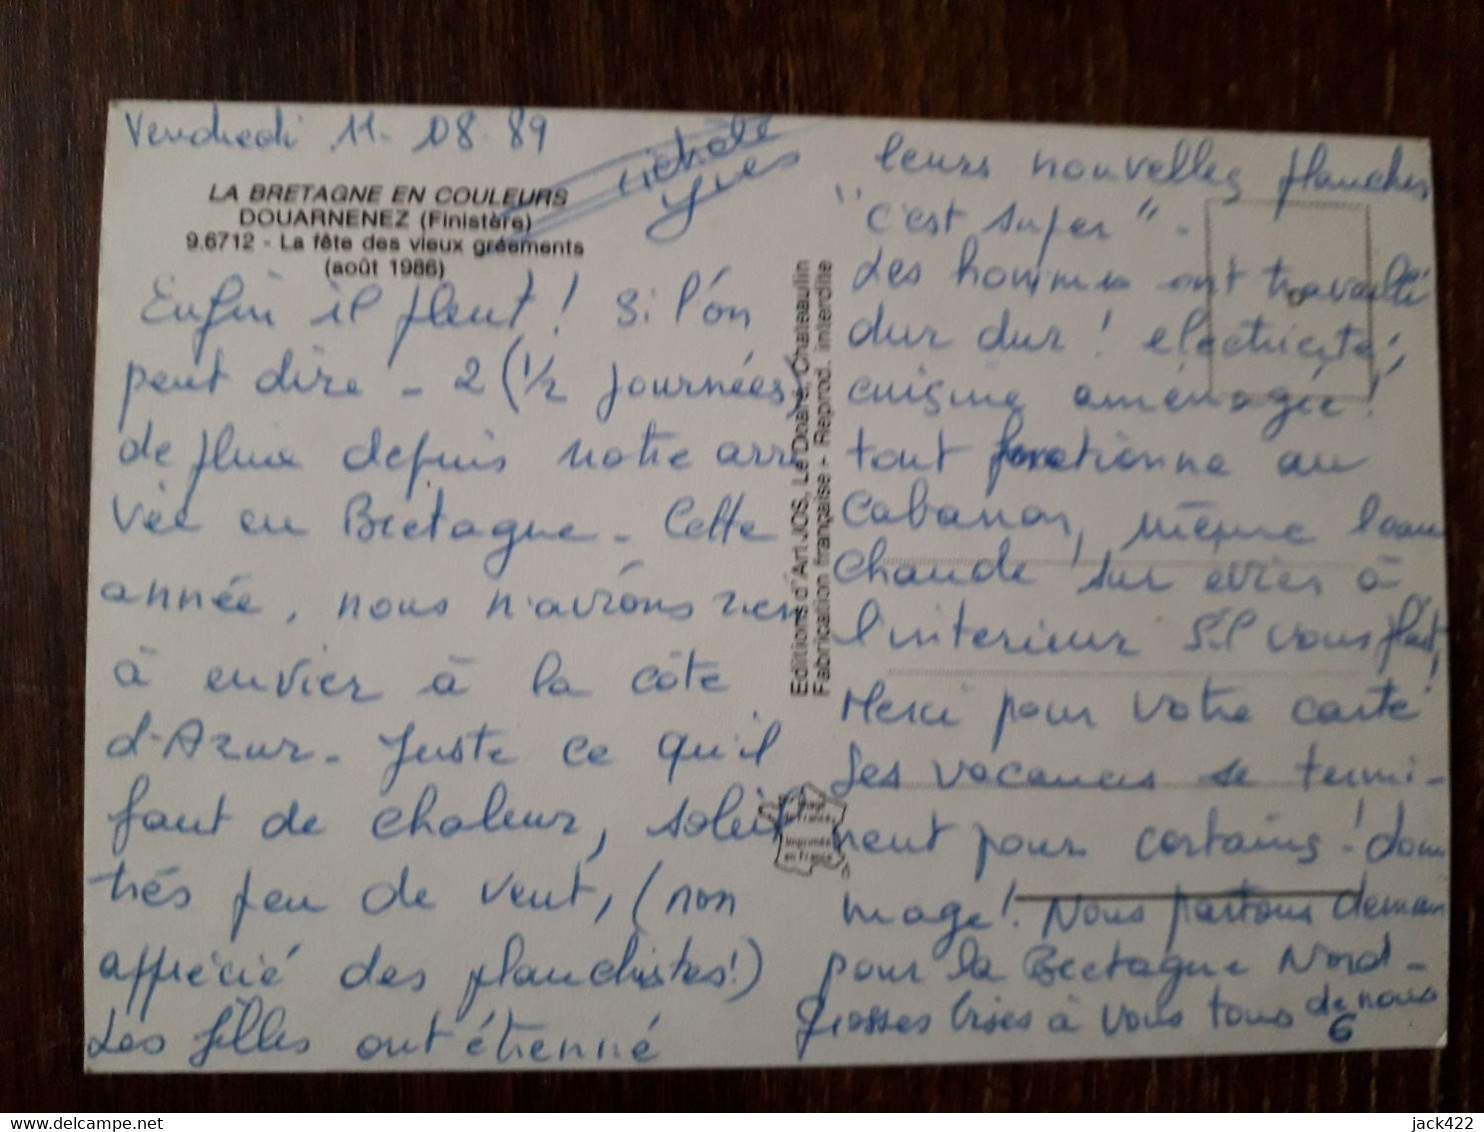 Vendredi 11-08-89
Michèle
Yves
LA BRETAGNE EN COULEURS
DOUARNENEZ (Finistère)
9.6712 - La fête des vieux gréements
(août 1986)
Enfin il pleut! Si l'on
peut dire - 2 (1/2 journées)
de pluie depuis notre arri
vée en Bretagne - Cette
année, nous n'avons rien
à envier à la côte
d'Azur - Juste ce qu'il
faut de chaleur, soleil
très peu de vent, (non
apprécié des planchistes!)
Les filles ont étrenné
Editions d'Art JOS, Le Doaré, Chateaulin
Fabrication française - Reprod. interdite
Imprimé
en France
leurs nouvelles planches
"c'est super" -
Les hommes ont travaillé
dur dur! electricité,
cuisine aménagée!
tout fonctionne au
Cabanon, même l'eau
chaude sur evier à
l'interieur S'il vous plait!
Merci pour votre carte
Les vacances se termi-
nent pour certains! dom
mage! Nous partons demain
pour la Bretagne Nord -
Grosses bises à vous tous de nous
6
jack422